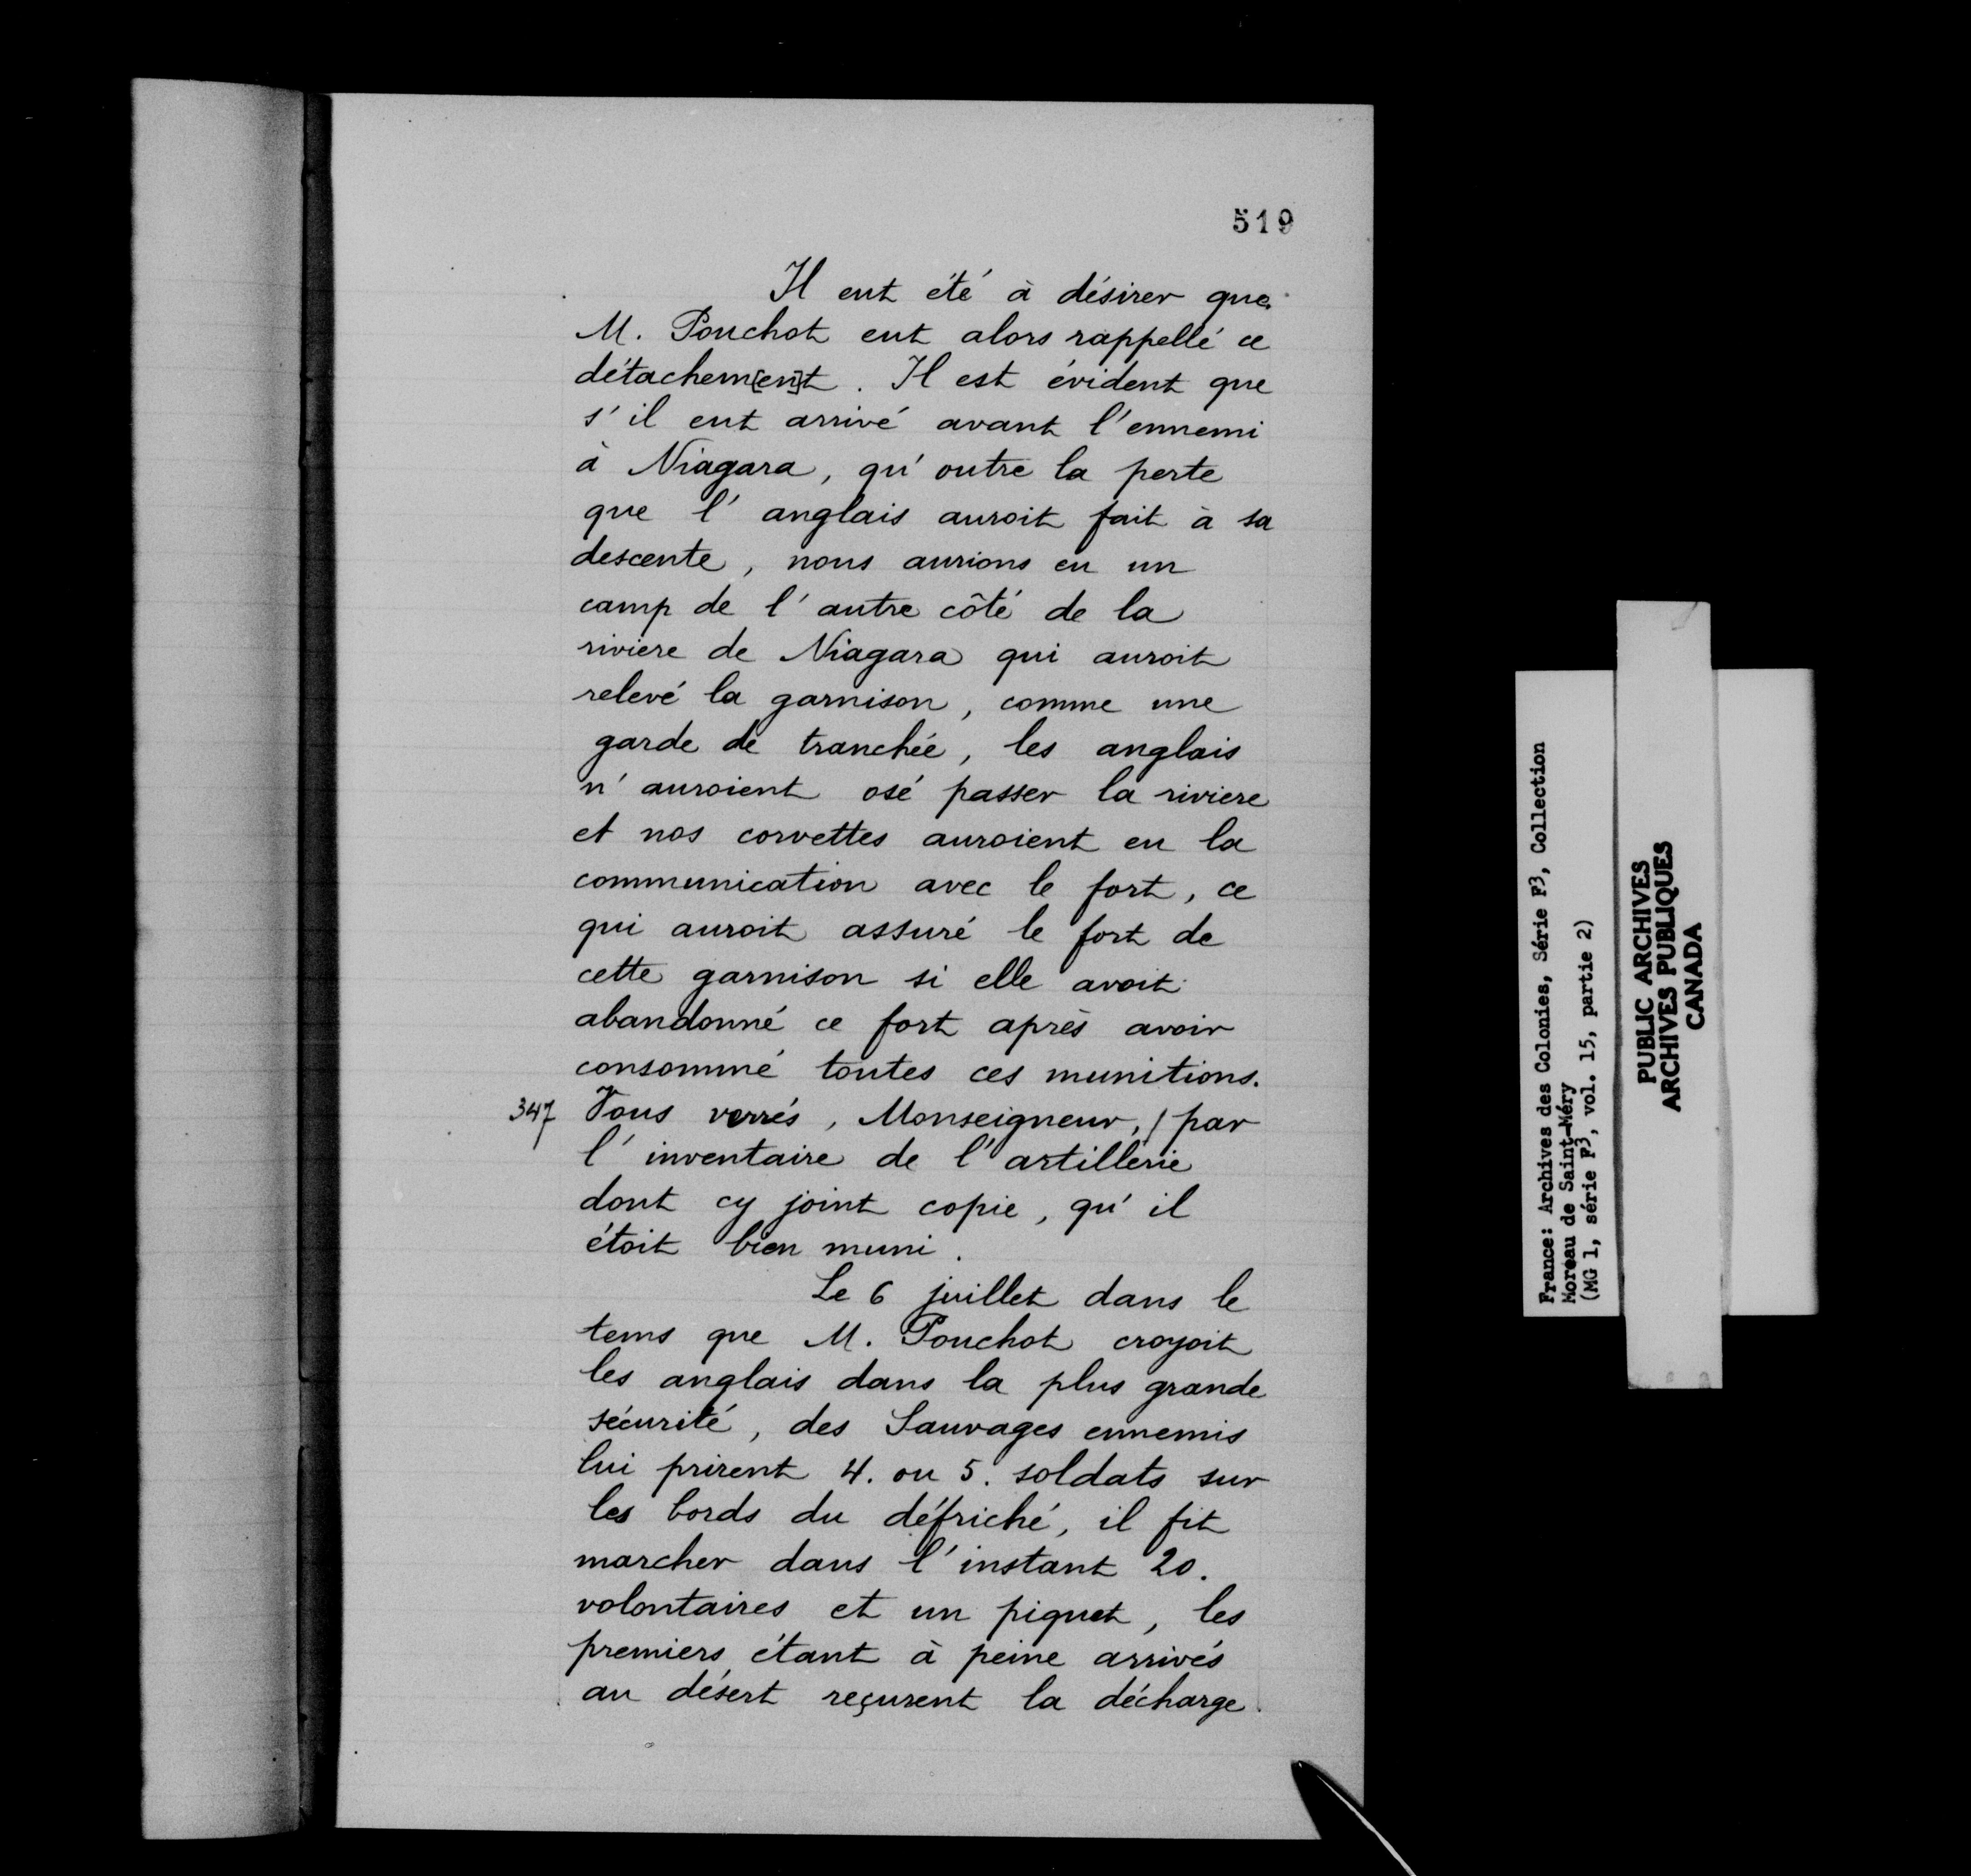 519
Il eut été à désirer que
M. Pouchot eut alors rappellé ce
détachem[en]t. Il est évident que
s'il eut arrivé avant l'ennemi
à Niagara, qu'outre la perte
que l'anglais auroit fait à sa
descente, nous aurions eu un
camp de l'autre côté de la
riviere de Niagara qui auroit
relevé la garnison, comme une
garde de tranchée, les anglais
n'auroient osé passer la riviere
et nos corvettes auroient eu la
communication avec le fort, ce
qui auroit assuré le fort de
cette garnison si elle avoit
abandonné ce fort après avoir
consommé toutes ces munitions.
347 Vous verrés, Monseigneur, / par
l'inventaire de l'artillerie
dont cy joint copie, qu'il
étoit bien muni.
Le 6 juillet dans le
tems que M. Pouchot croyoit
les anglais dans la plus grande
sécurité, des Sauvages ennemis
lui prirent 4. ou 5. soldats sur
les bords du défriché, il fit
marcher dans l'instant 20.
volontaires et un piquet, les
premiers étant à peine arrivés
au désert reçurent la décharge
France: Archives des Colonies, Série F3, Collection
Moreau de Saint-Méry
(MG 1, série F3, vol. 15, partie 2)
PUBLIC ARCHIVES
ARCHIVES PUBLIQUES
CANADA